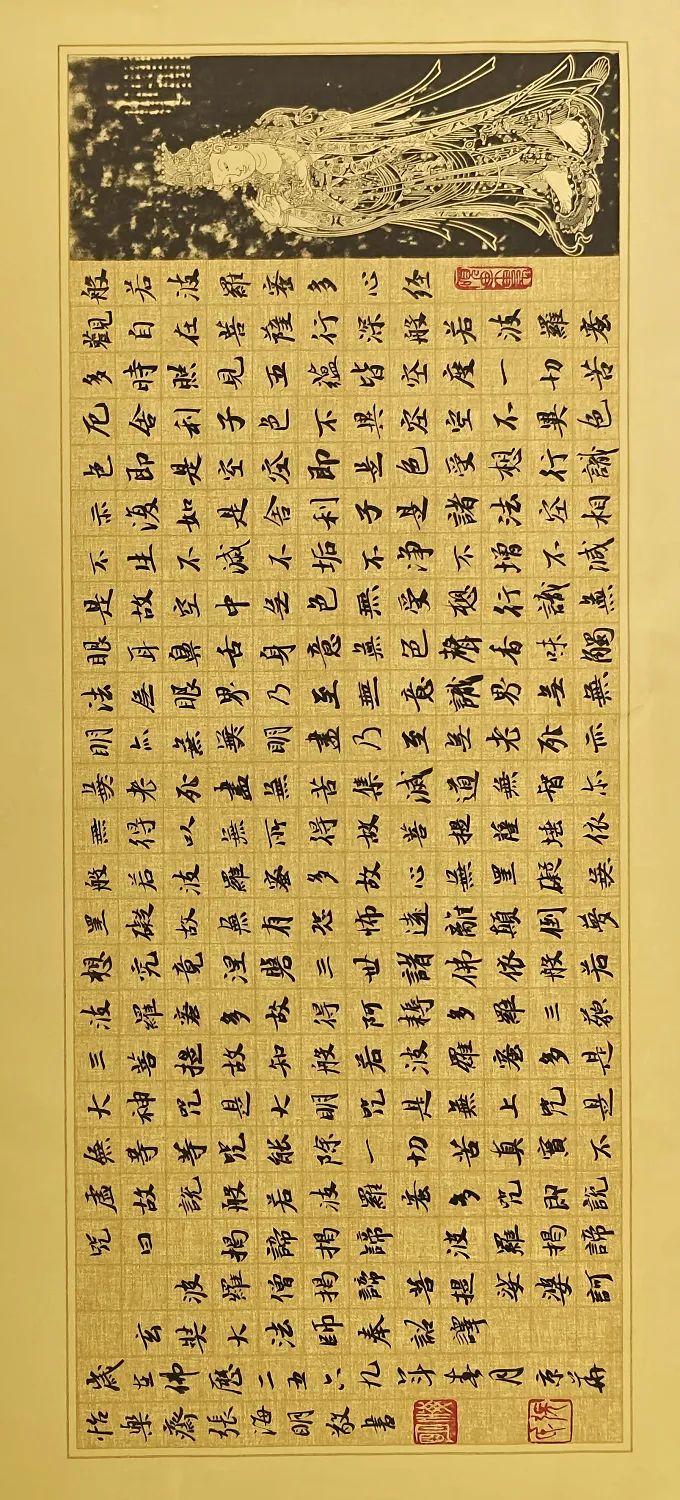 般若波羅蜜多心经
觀自在菩薩行深般若波羅蜜
多時照見五蘊皆空度一切苦
厄舍利子色不異空空不異色
色即是空空即是色受想行識
亦復如是舍利子是諸法空相
不生不滅不垢不净不增不減
是故空中無色無受想行識無
眼耳鼻舌身意無色聲香味觸
法無眼界乃至無意識界無無
明亦無無明盡乃至無老死亦
無老死盡無苦集滅道無智亦
無得以無所得故菩提薩埵依
般若波羅蜜多故心無罣礙無
罣礙故無有恐怖遠離顛倒夢
想究竟涅槃三世諸佛依般若
波羅蜜多故得阿耨多羅三藐
三菩提故知般若波羅蜜多是
大神咒是大明咒是無上咒是
無等等咒能除一切苦真實不
虛故說般若波羅蜜多咒即說
咒曰 揭諦揭諦 波羅揭諦
波羅僧揭諦菩提娑婆訶
玄奘大法師奉詔譯
歲在佛歷二五六九年春月京華
怡樂齋張海明敬書